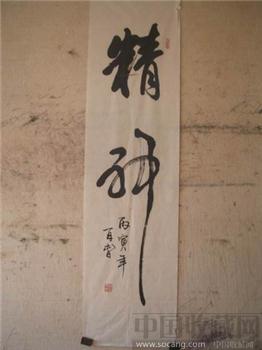 精神
丙寅年
中国收藏网
www.socang.com